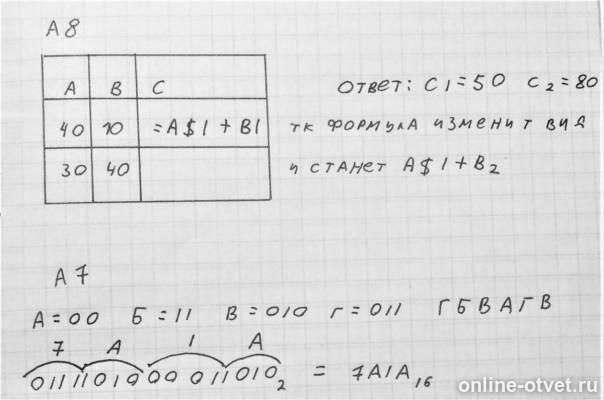 А8
A B C
40 10 =A$1+B1
30 40
Ответ: C1=50 C2=80
тк формула изменит вид
и станет A$1+B2
А7
А=00 Б=11 В=010 Г=011 ГБВАГВ
7 A 1 A
0111101000011010₂ = 7A1A₁₆
online-otvet.ru